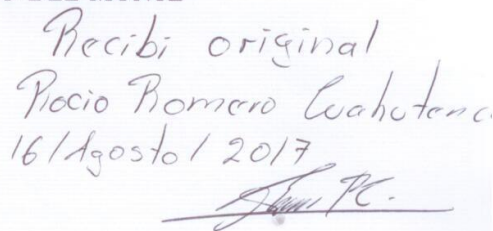 Recibi original
Rocio Romero Cuahutenc
16/Agosto/2017